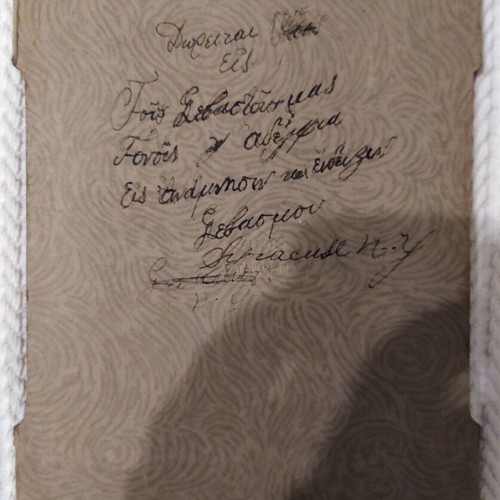 Δωρειται
Εις
Τοῖς Σεβαστοῖς μας
Γονοῖς γ αδέλφια
Εις ἀνάμνησιν και ἔνδειξιν
Σεβασμου
Syracuse N.Y